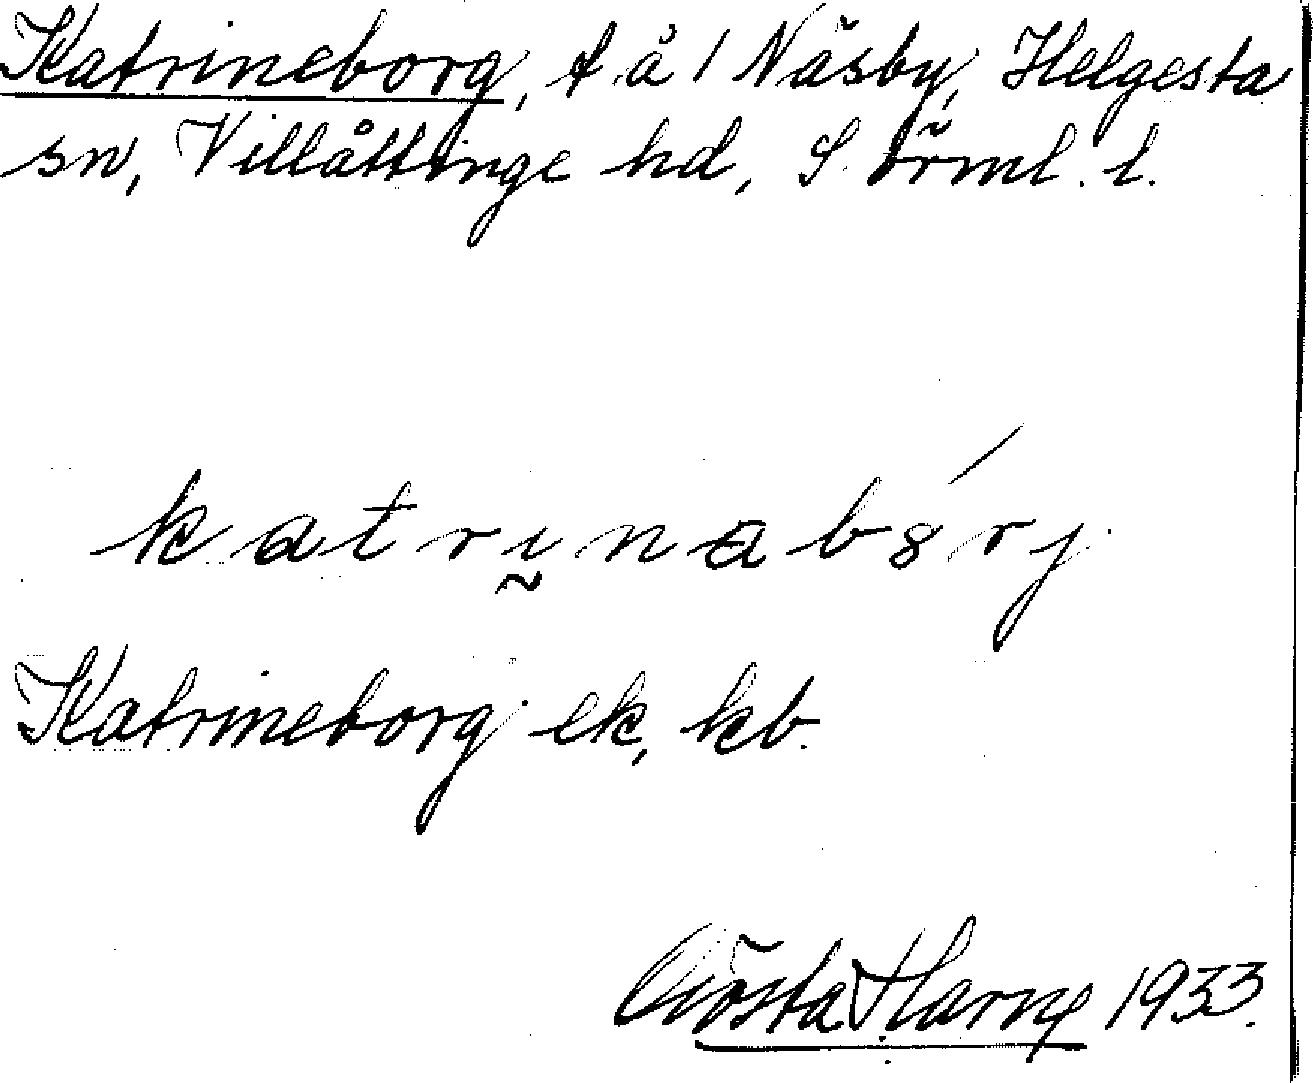 Katrineborg, t å 1 Näsby, Helgesta
sn, Villåttinge hd, S. örml. l.
katrinabǿrj
Katrineborg ek, kb.
Gösta Harne 1933.